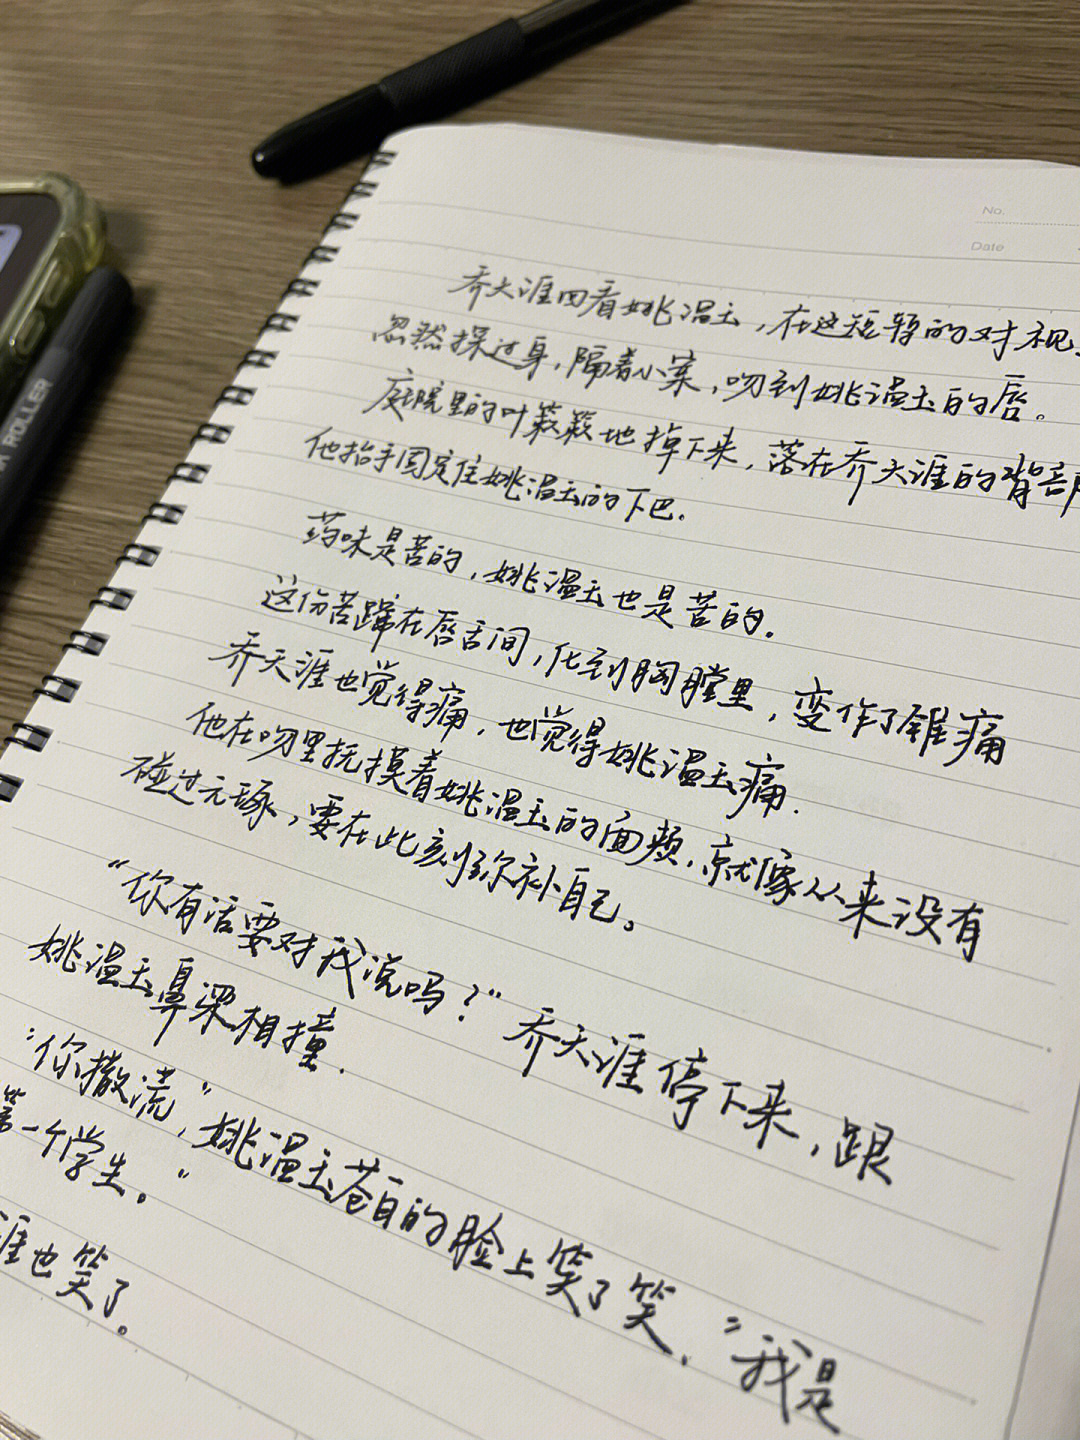 No.
Date
乔天涯回看姚温玉，在这短暂的对视
忽然探过身，隔着小案，吻到姚温玉的唇。
庭院里的叶簌簌地掉下来，落在乔天涯的背部
他抬手固定住姚温玉的下巴.
药味是苦的，姚温玉也是苦的.
这份苦蹿在唇舌间，化到胸膛里，变作了锥痛
乔天涯也觉得痛，也觉得姚温玉痛.
他在吻里抚摸着姚温玉的面颊，就像从来没有
碰过元琢，要在此刻弥补自己。
“你有话要对我说吗？”乔天涯停下来，跟
姚温玉鼻梁相撞.
“你撒谎”，姚温玉苍白的脸上笑了笑，“我是
第一个学生。”
涯也笑了。
ROLLER